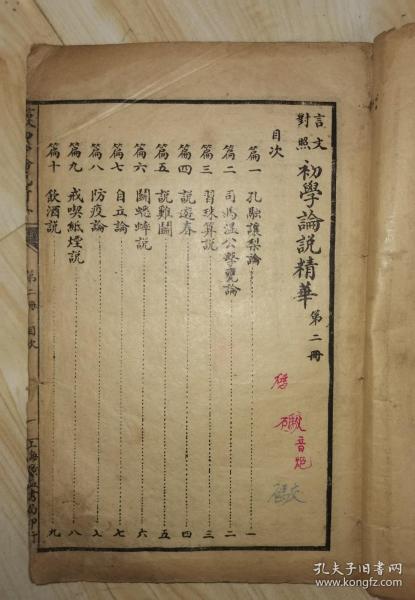 言文對照
初學論説精華 第二冊
目次
篇一 孔融讓梨論 一
篇二 司馬溫公擊甕論 二
篇三 習珠算説 三
篇四 説遊春 四
篇五 説雞鬬 五
篇六 鬬蟋蟀説 六
篇七 自立論 七
篇八 防疫論 八
篇九 戒喫紙煙説 八
篇十 飲酒説 九
第二冊 目次 一
音
孔夫子旧书网
www.kongfz.com